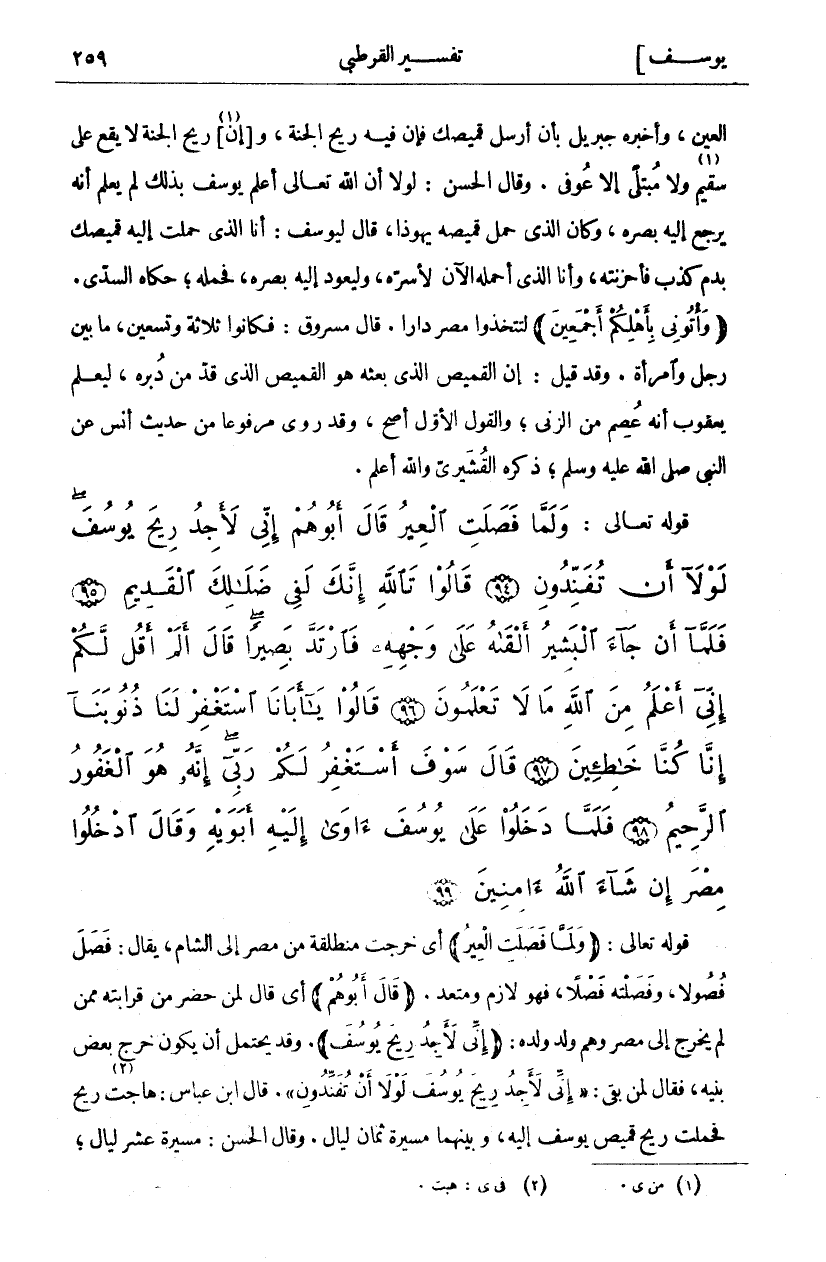 يوسف] تفسير القرطبي ٢٥٩
العين ، وأخبره جبريل بأن أرسل قميصك فإن فيه ريح الجنة ، و[إن](١) ريح الجنة لا يقع على
سقيم ولا مُبتلًى(١) إلا عُوفى . وقال الحسن : لولا أن الله تعالى أعلم يوسف بذلك لم يعلم أنه
يرجع إليه بصره ، وكان الذى حمل قميصه يهوذا، قال ليوسف : أنا الذى حملت إليه قميصك
بدم كذب فأحزنته، وأنا الذى أحمله الآن لأسرّه، وليعود إليه بصره، فحمله؛ حكاه السدّى.
﴿ وَأْتُونِى بِأَهْلِكُمْ أَجْمَعِينَ ﴾ لتتخذوا مصر دارا . قال مسروق : فكانوا ثلاثة وتسعين، ما بين
رجل وٱمرأة . وقد قيل : إن القميص الذى بعثه هو القميص الذى قدّ من دُبره ، ليعلم
يعقوب أنه عُصِم من الزنى ؛ والقول الأوّل أصح ، وقد روى مرفوعا من حديث أنس عن
النبى صلى الله عليه وسلم ؛ ذكره القُشَيرىّ والله أعلم .
قوله تعالى : وَلَمَّا فَصَلَتِ ٱلْعِيرُ قَالَ أَبُوهُمْ إِنِّى لَأَجِدُ رِيحَ يُوسُفَ ۖ
لَوْلَآ أَن تُفَنِّدُونِ ﴿٩٤﴾ قَالُوا۟ تَٱللَّهِ إِنَّكَ لَفِى ضَلَـٰلِكَ ٱلْقَدِيمِ ﴿٩٥﴾
فَلَمَّآ أَن جَآءَ ٱلْبَشِيرُ أَلْقَىٰهُ عَلَىٰ وَجْهِهِۦ فَٱرْتَدَّ بَصِيرًا ۖ قَالَ أَلَمْ أَقُل لَّكُمْ
إِنِّىٓ أَعْلَمُ مِنَ ٱللَّهِ مَا لَا تَعْلَمُونَ ﴿٩٦﴾ قَالُوا۟ يَـٰٓأَبَانَا ٱسْتَغْفِرْ لَنَا ذُنُوبَنَآ
إِنَّا كُنَّا خَـٰطِـِٔينَ ﴿٩٧﴾ قَالَ سَوْفَ أَسْتَغْفِرُ لَكُمْ رَبِّىٓ ۖ إِنَّهُۥ هُوَ ٱلْغَفُورُ
ٱلرَّحِيمُ ﴿٩٨﴾ فَلَمَّا دَخَلُوا۟ عَلَىٰ يُوسُفَ ءَاوَىٰٓ إِلَيْهِ أَبَوَيْهِ وَقَالَ ٱدْخُلُوا۟
مِصْرَ إِن شَآءَ ٱللَّهُ ءَامِنِينَ ﴿٩٩﴾
قوله تعالى : ﴿ وَلَمَّا فَصَلَتِ الْعِيرُ ﴾ أى خرجت منطلقة من مصر إلى الشام، يقال : فَصَلَ
فُصُولا، وفَصَلْته فَصْلًا، فهو لازم ومتعد . ﴿ قَالَ أَبُوهُمْ ﴾ أى قال لمن حضر من قرابته ممن
لم يخرج إلى مصر وهم ولد ولده : ﴿ إِنِّى لَأَجِدُ رِيحَ يُوسُفَ ﴾ . وقد يحتمل أن يكون خرج بعض
بنيه، فقال لمن بقى : « إِنِّى لَأَجِدُ رِيحَ يُوسُفَ لَوْلَا أَنْ تُفَنِّدُونِ » . قال ابن عباس : هاجت(٢) ريح
فحملت ريح قميص يوسف إليه، وبينهما مسيرة ثمان ليال . وقال الحسن : مسيرة عشر ليال ؛
(١) من ى . (٢) فى ى : هبت .